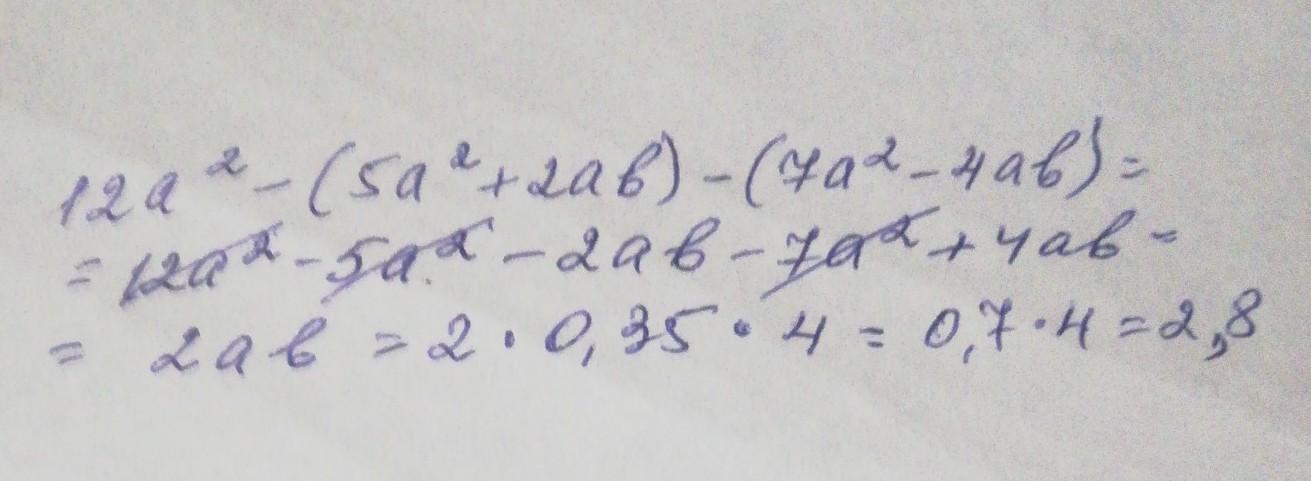 12a² - (5a² + 2ab) - (7a² - 4ab) =
= 12a² - 5a² - 2ab - 7a² + 4ab =
= 2ab = 2 · 0,35 · 4 = 0,7 · 4 = 2,8